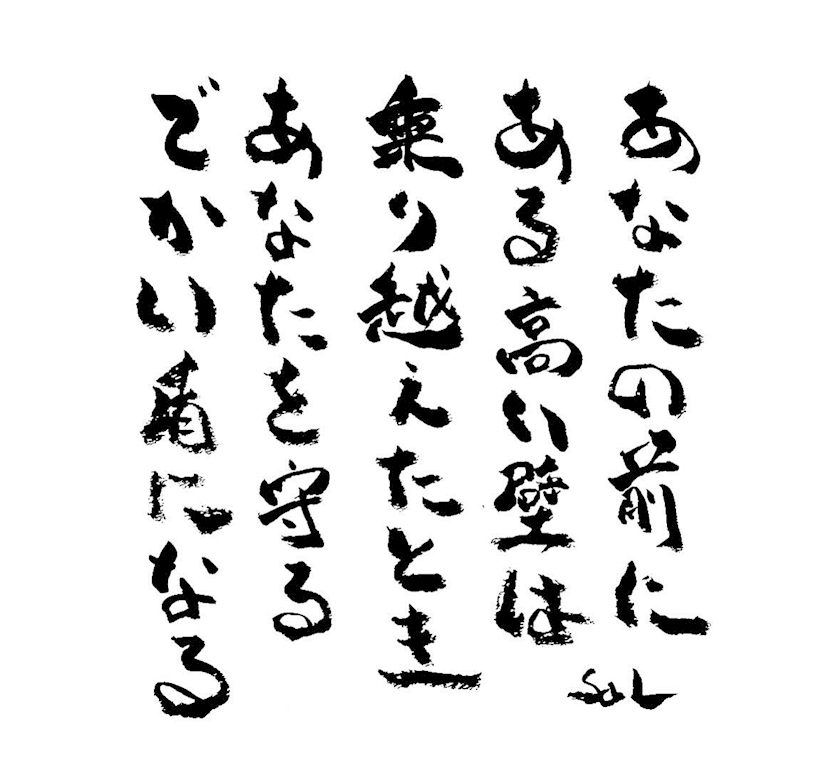 あなたの前に
ある高い壁は
乗り越えたとき
あなたを守る
でかい盾になる